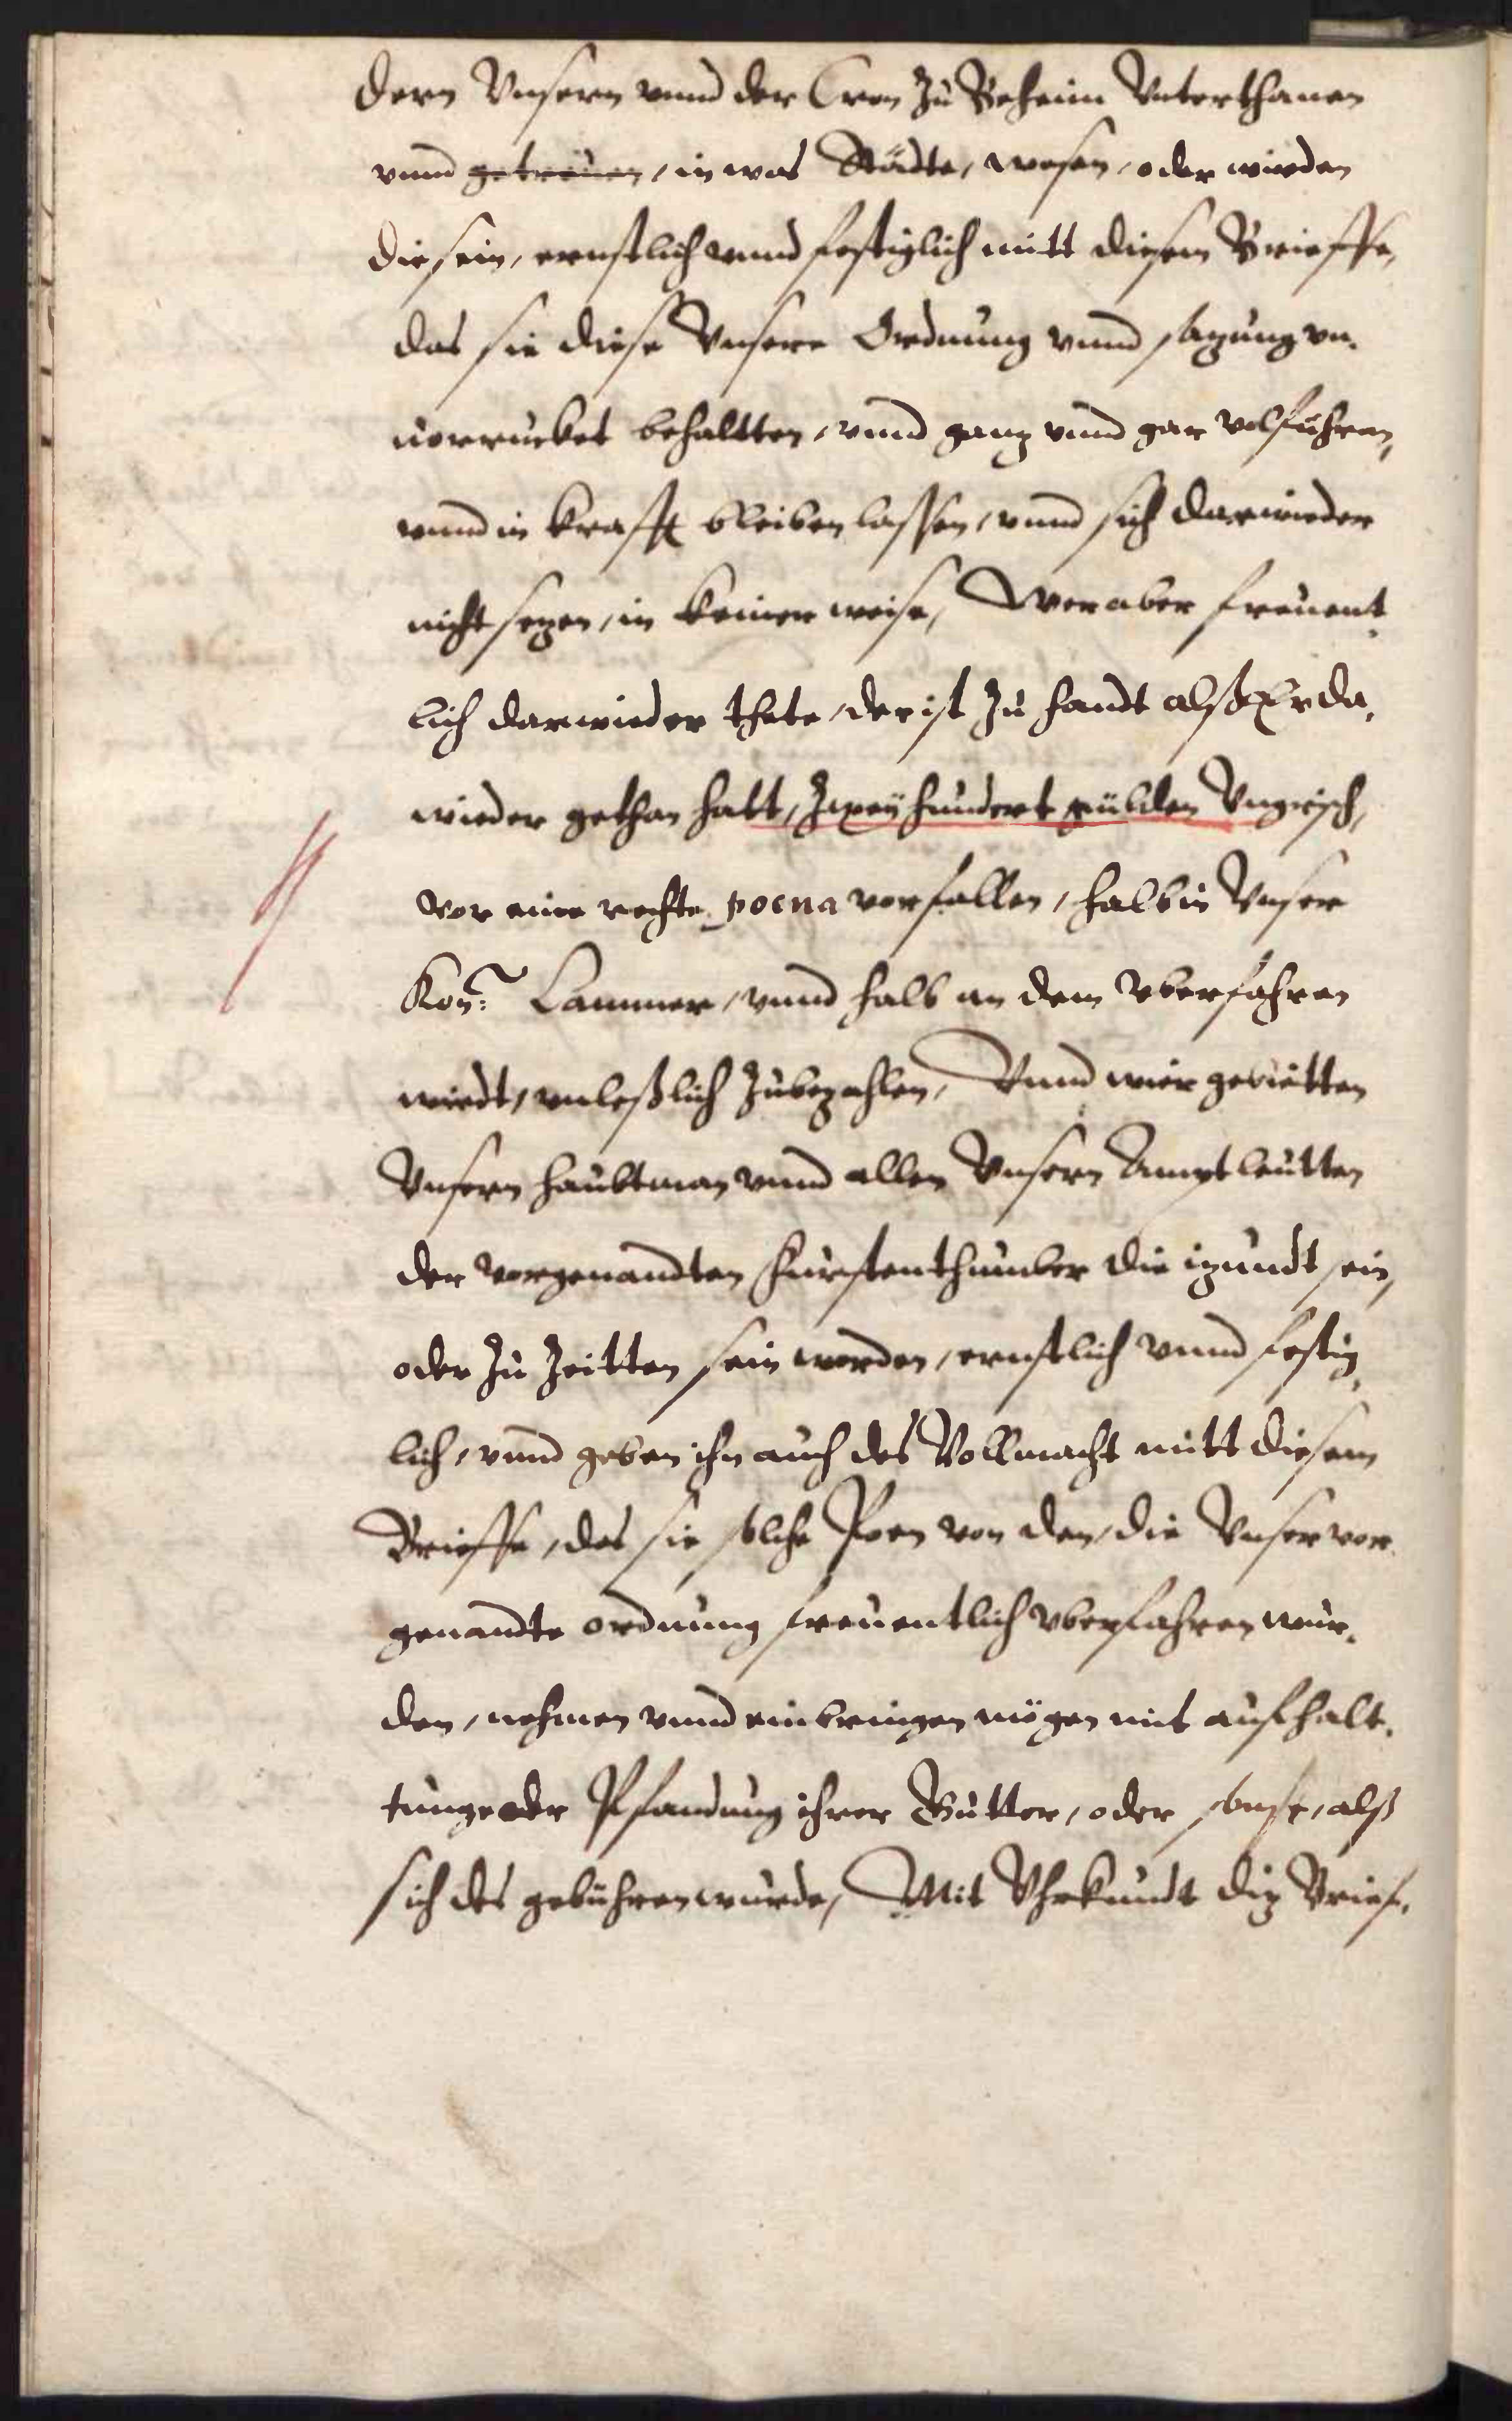 dern Vnsern vnnd der Cron Zu Beheim Vnterthanen
vnnd getreuen, in was Städte, wesen, oder wirden
die sein, ernstlich vnnd festiglich mitt diesem Brieffe,
das sie diese Vnsere Ordnung vnnd sazung vn-
uorrucket behaltten, vnnd ganz vnnd gar volführen,
vnnd in krafft bleiben lassen, vnnd sich darwieder
nicht sezen, in keiner weise, Wer aber freuent-
lich darwieder thete, der ist Zu handt alß Er da-
wieder gethan hatt, Zweÿ hundert gülden Vngrisch,
vor eine rechte poena vorfallen, halb in Vnser
Kön: Cammer, vnnd halb an dem vberfahren
wirdt, vnleßlich Zubezahlen, Vnnd wier gebietten
Vnsern haubtman vnnd allen Vnsern Amptleutten
der vorgenandten Fürstenthumber die izundt sein,
oder Zu Zeitten sein werden, ernstlich vnnd festig-
lich, vnnd geben ihn auch des Vollmacht mitt diesem
Brieffe, das sie solche Poen von den, die Vnser vor-
genandte ordnung freuentlich vberfahren wur-
den, nehmen vnnd einbringen mögen mit aufhalt-
tunge oder Pfandung ihrer Gutter, oder sonst, alß
sich des gebühren wurde, Mit Vhrkundt diz Brief-